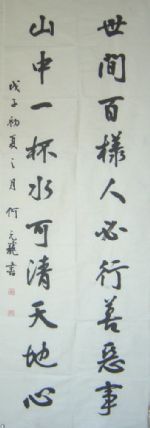 世间百樣人必行善惡事
山中一杯水可清天地心
戊子初夏之月 何元龍書